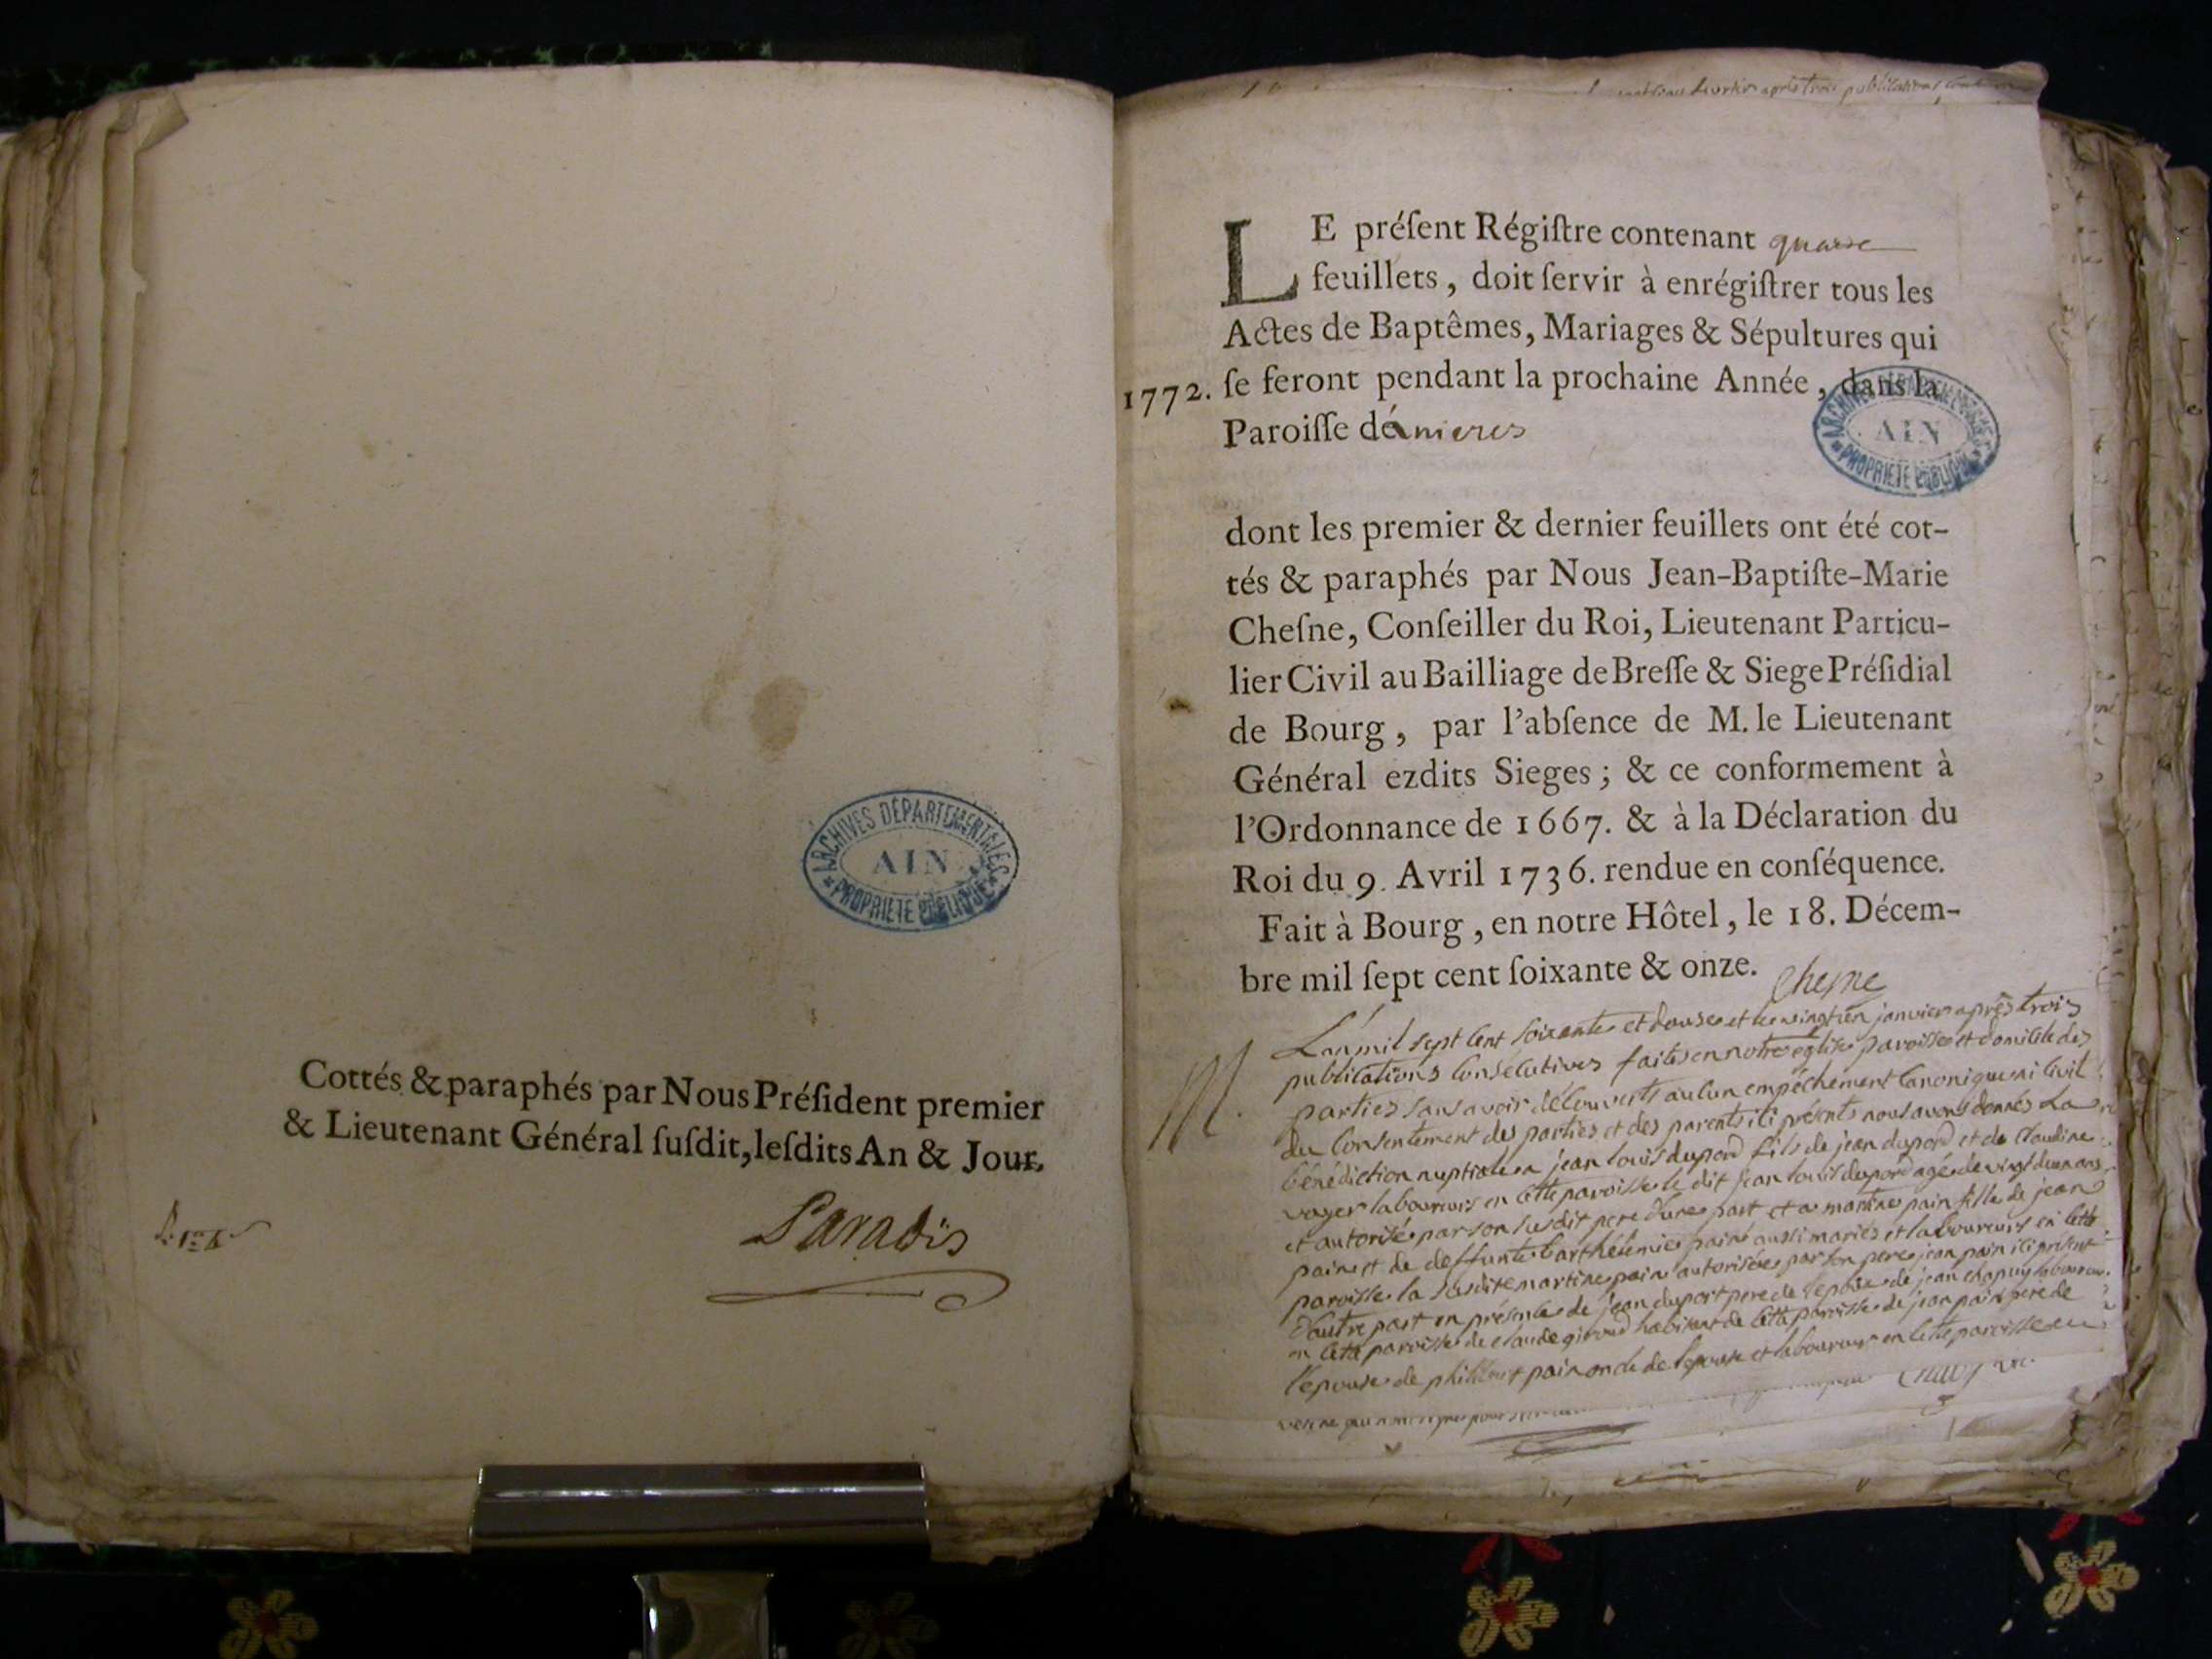 Cottés & paraphés par Nous Préſident premier
& Lieutenant Général ſuſdit, leſdits An & Jour.
Paradis
ARCHIVES DÉPARTEMENTALES
AIN
PROPRIÉTÉ PUBLIQUE
après trois publications
LE préſent Régiſtre contenant
feuillets, doit ſervir à enrégiſtrer tous les
Actes de Baptêmes, Mariages & Sépultures qui
1772. ſe feront pendant la prochaine Année, dans la
Paroiſſe dé
ARCHIVES DÉPARTEMENTALES
AIN
PROPRIÉTÉ PUBLIQUE
dont les premier & dernier feuillets ont été cot-
tés & paraphés par Nous Jean-Baptiſte-Marie
Cheſne, Conſeiller du Roi, Lieutenant Particu-
lier Civil au Bailliage de Breſſe & Siege Préſidial
de Bourg, par l'abſence de M. le Lieutenant
Général ezdits Sieges; & ce conformement à
l'Ordonnance de 1667. & à la Déclaration du
Roi du 9. Avril 1736. rendue en conſéquence.
Fait à Bourg, en notre Hôtel, le 18. Décem-
bre mil ſept cent ſoixante & onze.
Chesne
M. L'an mil sept cent soixante et douse et le vingt un janvier après trois
publications consécutives faites en notre église paroisse et domicile des
parties sans avoir découverts aucun empéchement canonique ni civil
du consentement des parties et des parents ici présents nous avons donnés la
bénédiction nuptiale a jean louis dupord fils de jean dupord et de claudine
voyer laboureurs en cette paroisse le dit jean louis dupord agé de vingt deux ans
et autorisé par son susdit pere d'une part et a martine pain fille de jean
pain et de deffunte barthélemie pain aussi mariés et laboureurs en cette
paroisse la susdite martine pain autorisée par son pere jean pain ici présent
d'autre part en présence de jean duport pere de l'epoux de jean chapuy laboureur
en cette paroisse de claude giroud habitant de cette paroisse de jean pain pere de
l'epouse de philibert pain oncle de l'epouse et laboureur en cette paroisse